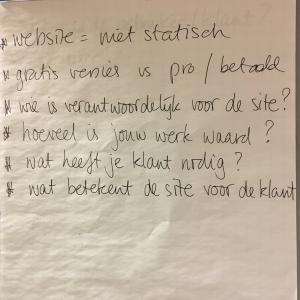 * website = niet statisch
* gratis versies vs pro / betaald
* wie is verantwoordelijk voor de site?
* hoeveel is jouw werk waard?
* wat heeft je klant nodig?
* wat betekent de site voor de klant